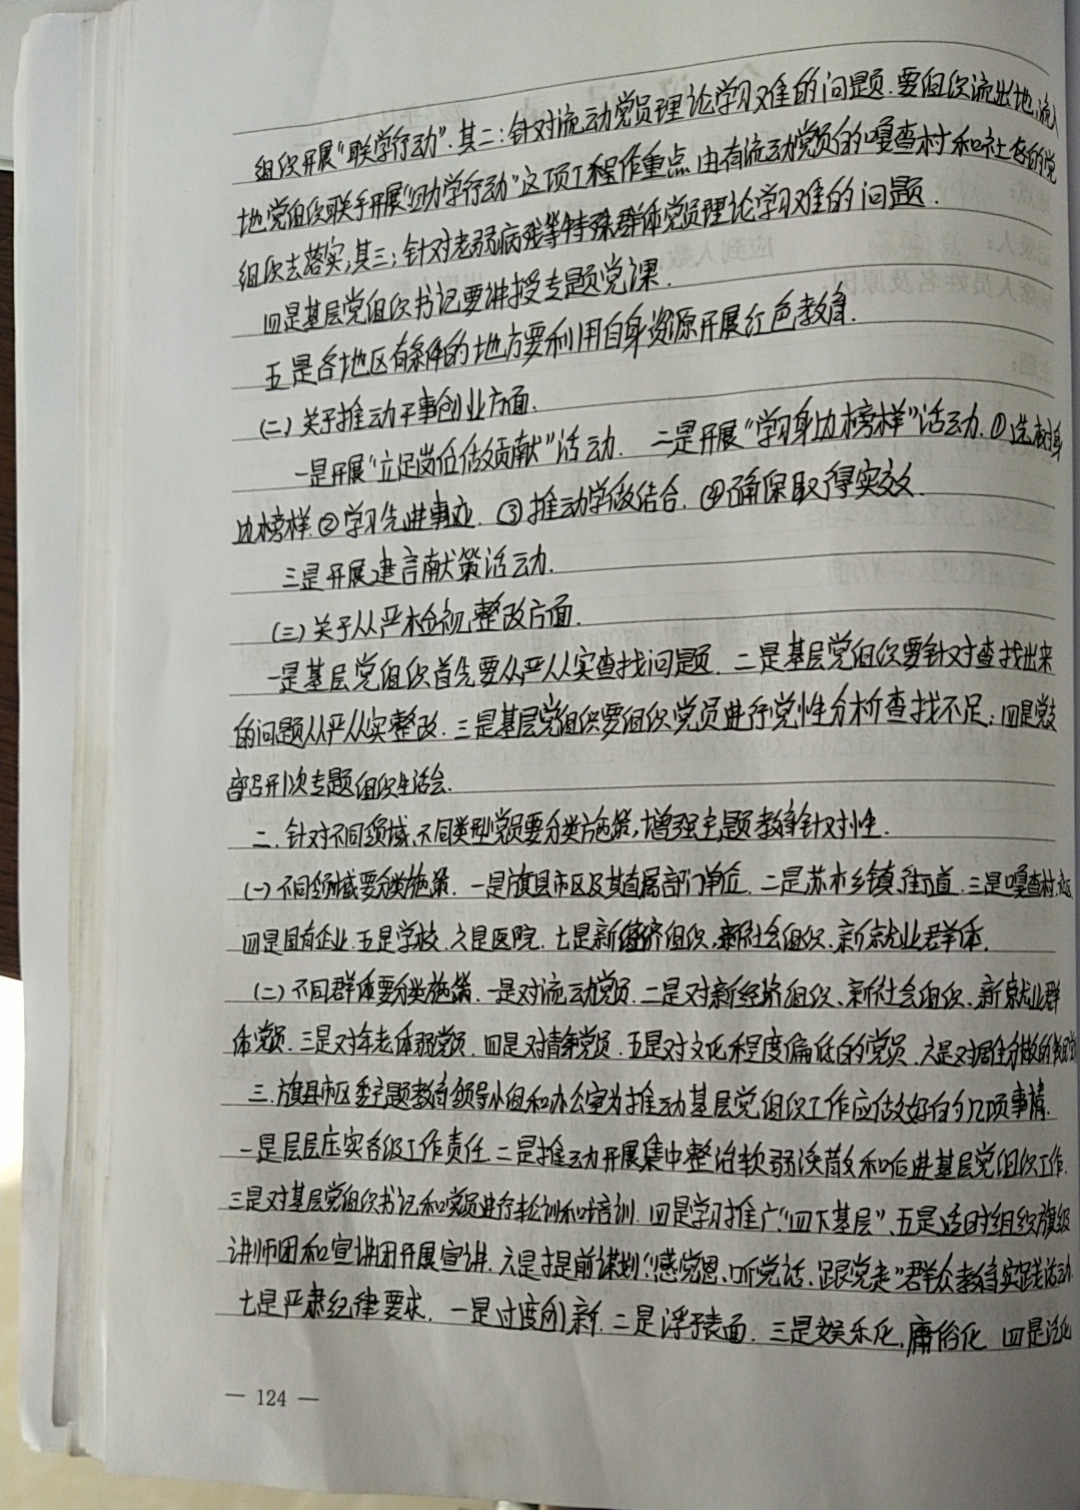 组织开展“联学行动”.其二:针对流动党员理论学习难的问题.要组织流出地,流入
地党组织联手开展“助学行动”这项工程作重点.由有流动党员的嘎查村和社区的党
组织去落实;其三:针对老弱病残等特殊群体党员理论学习难的问题.
四是基层党组织书记要讲授专题党课.
五是各地区有条件的地方要利用自身资源开展红色教育.
(二)关于推动干事创业方面.
一是开展“立足岗位做贡献”活动. 二是开展“学习身边榜样”活动.①选树身
边榜样.②学习先进事迹. ③推动学做结合. ④确保取得实效.
三是开展建言献策活动.
(三)关于从严检视整改方面.
一是基层党组织首先要从严从实查找问题. 二是基层党组织要针对查找出来
的问题从严从实整改. 三是基层党组织要组织党员进行党性分析查找不足; 四是党支
部召开1次专题组织生活会.
二.针对不同领域、不同类型党员要分类施策,增强主题教育针对性.
(一)不同领域要分类施策. 一是旗县市区及其直属部门单位. 二是苏木乡镇、街道. 三是嘎查村.
四是国有企业.五是学校.六是医院.七是新经济组织,新社会组织、新就业群体.
(二)不同群体要分类施策.一是对流动党员.二是对新经济组织、新社会组织、新就业群
体党员.三是对年老体弱党员.四是对青年党员.五是对文化程度偏低的党员.六是对居住分散的
三.旗县市区委主题教育领导小组和办公室为推动基层党组织工作应做好的几项事情.
一是层层压实各级工作责任.二是推动开展集中整治软弱涣散和后进基层党组织工作.
三是对基层党组织书记和党员进行轮训和培训.四是学习推广“四下基层”.五是适时组织旗级
讲师团和宣讲团开展宣讲.六是提前谋划“感党恩、听党话、跟党走”群众教育实践活动
七是严肃纪律要求. 一是过度创新.二是浮于表面. 三是娱乐化,庸俗化. 四是
— 124 —